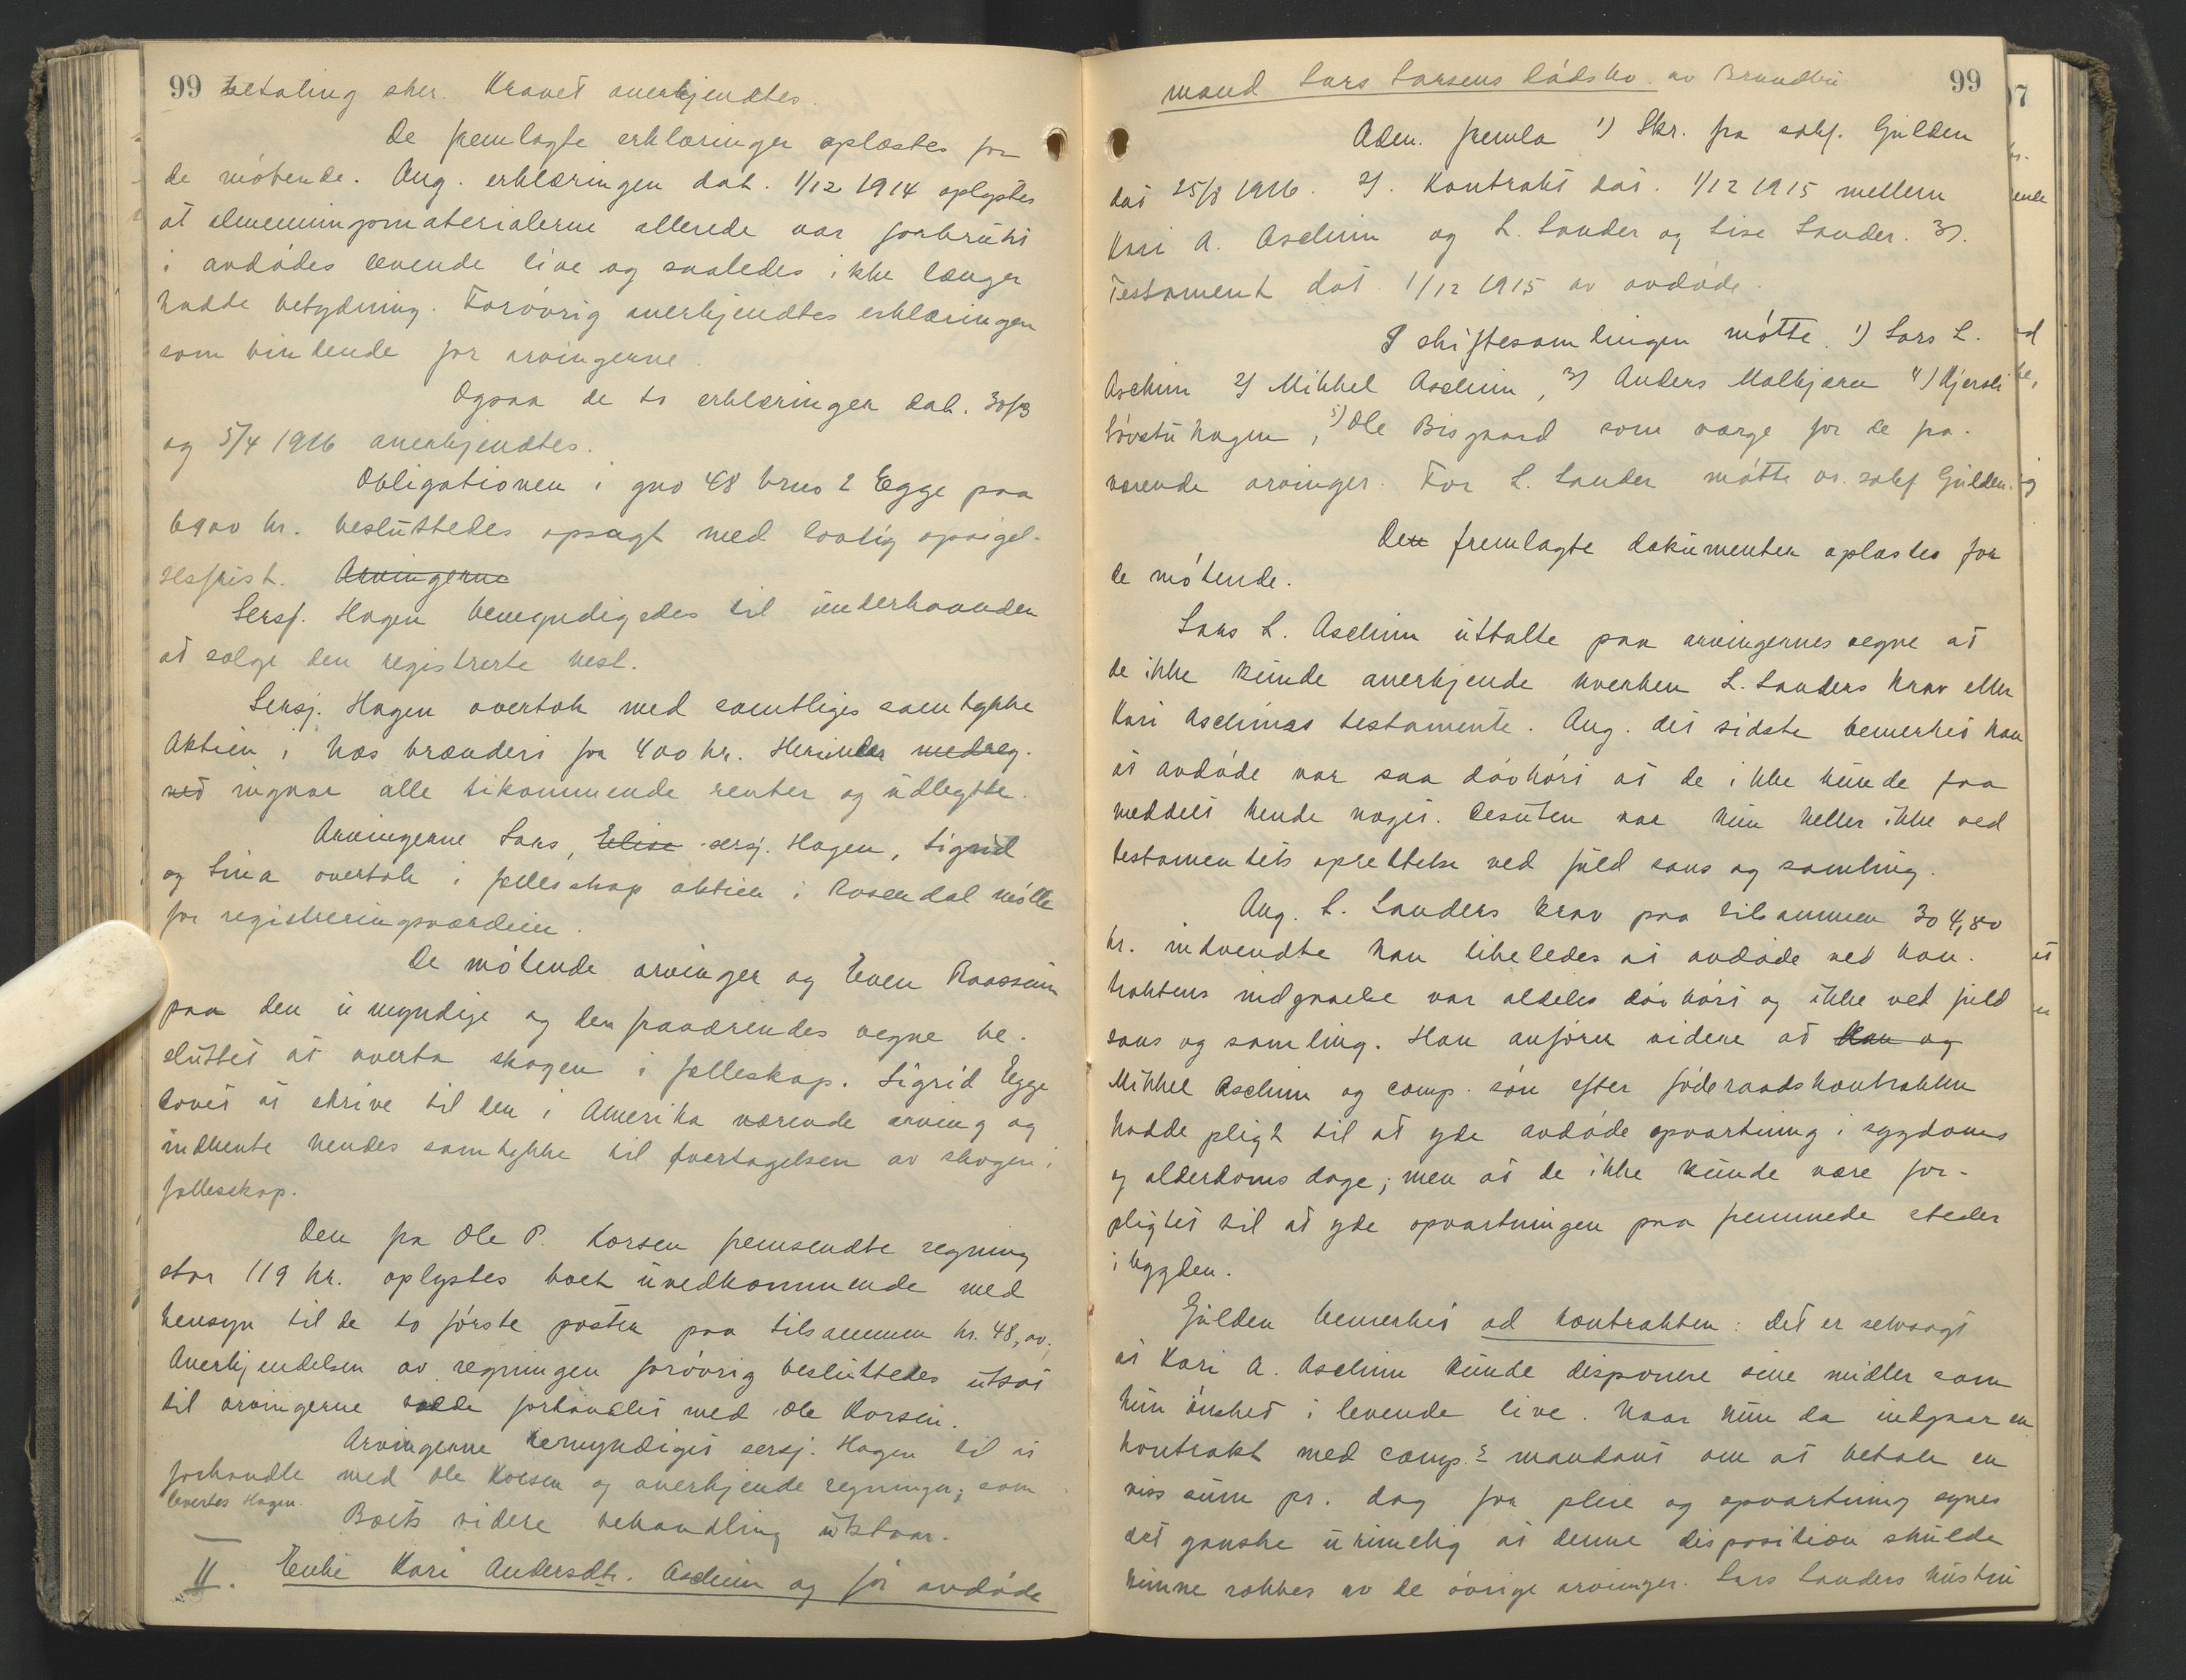 99 betaling sker. Kravet anerkjendtes.
De fremlagte erklæringer oplæstes for
de møtende. Ang. erklæringen dat. 1/12 1914 oplystes
at almenningsmaterialerne allerede var forbrukt
i avdødes levende live og saaledes ikke længer
hadde betydning. Forøvrig anerkjendtes erklæringen
som bindende for arvingerne.
Ogsaa de to erklæringer dat. 30/3
og 5/4 1916 anerkjendtes.
Obligationen i gno 48 brno 2 Egge paa
6900 kr. besluttedes opsagt med lovlig opsigel-
sesfrist. Arvingerne
Sersj. Hagen bemyndigedes til underhaanden
at sælge den registrerte hest.
Sersj. Hagen overtok med samtliges samtykke
Aktien i Næs brænderi for 400 kr. Herunder medreg.
ned ingaar alle tilkommende renter og utbytte.
Arvingerne Lars, Elise sersj. Hagen, Sigrid
og Lina overtok i fælleskap aktien i Rosendal mølle
for registreringsværdien.
De møtende arvinger og Even Raassum
paa den umyndige og den fraværendes vegne be-
sluttet at overta skogen i fælleskap. Sigrid Egge
lovet at skrive til den i Amerika værende arving og
indhente hendes samtykke til overtagelsen av skogen i
fælleskap.
Den fra Ole P. Korsen fremsendte regning
stor 119 kr. oplystes boet uvedkommende med
hensyn til de to første poster paa tilsammen kr. 48,00.
Anerkjendelsen av regningen forøvrig besluttedes utsat
til arvingerne hadde forhandlet med Ole Korsen.
Arvingerne bemyndiget sersj. Hagen til at
forhandle med Ole Korsen og anerkjende regningen; som
levertes Hagen.
Boets videre behandling utstaar.
II. Enke Kari Andersdtr. Aschim og før avdøde
mand Lars Larsens dødsbo av Brandbu
99
Adm. fremla 1) Skr. fra sakf. Gulden
dat 25/8 1916. 2). Kontrakt dat. 1/12 1915 mellem
Kari A. Aschim og L. Sander og Lise Sander. 3).
Testament dat. 1/12 1915 av avdøde.
I skiftesamlingen møtte. 1) Lars L.
Aschim 2) Mikkel Aschim, 3) Anders Molkjæren 4) Kjersti
Løvstuhagen, 5) Ole Bisgaard som værge for de fra-
værende arvinger. For L. Sander møtte or. sakf Gulden.
Den fremlagte dokumenter oplæstes for
de møtende.
Lars L. Aschim uttalte paa arvingernes vegne at
de ikke kunde anerkjende hverken L. Sanders krav eller
Kari Aschims testamente. Ang. det sidste bemerket han
at avdøde var saa døvhørt at de ikke kunde faa
meddelt hende noget. Desuten var hun heller ikke ved
testamentets oprettelse ved fuld sans og samling.
Ang. L. Sanders krav paa tilsammen 304,80
kr. indvendte han likeledes at avdøde ved kon-
traktens indgaaelse var aldeles døvhørt og ikke ved fuld
sans og samling. Han anfører videre at han og
Mikkel Aschim og comp. søn efter føderaadskontrakten
hadde pligt til at yde avdøde opvartning i sygdoms
og alderdoms dage; men at de ikke kunde være for-
pligtet til at yde opvartningen paa fremmede steder
i bygden.
Gulden bemerket ad kontrakten: det er selvsagt
at Kari A. Aschim kunde disponere sine midler som
hun ønsket i levende live. Naar hun da indgaar en
kontrakt med comp.s mandant om at betale en
viss sum pr. dag for pleie og opvartning synes
det ganske urimelig at denne disposition skulde
kunne rokkes av de øvrige arvinger. Lars Sanders hustru